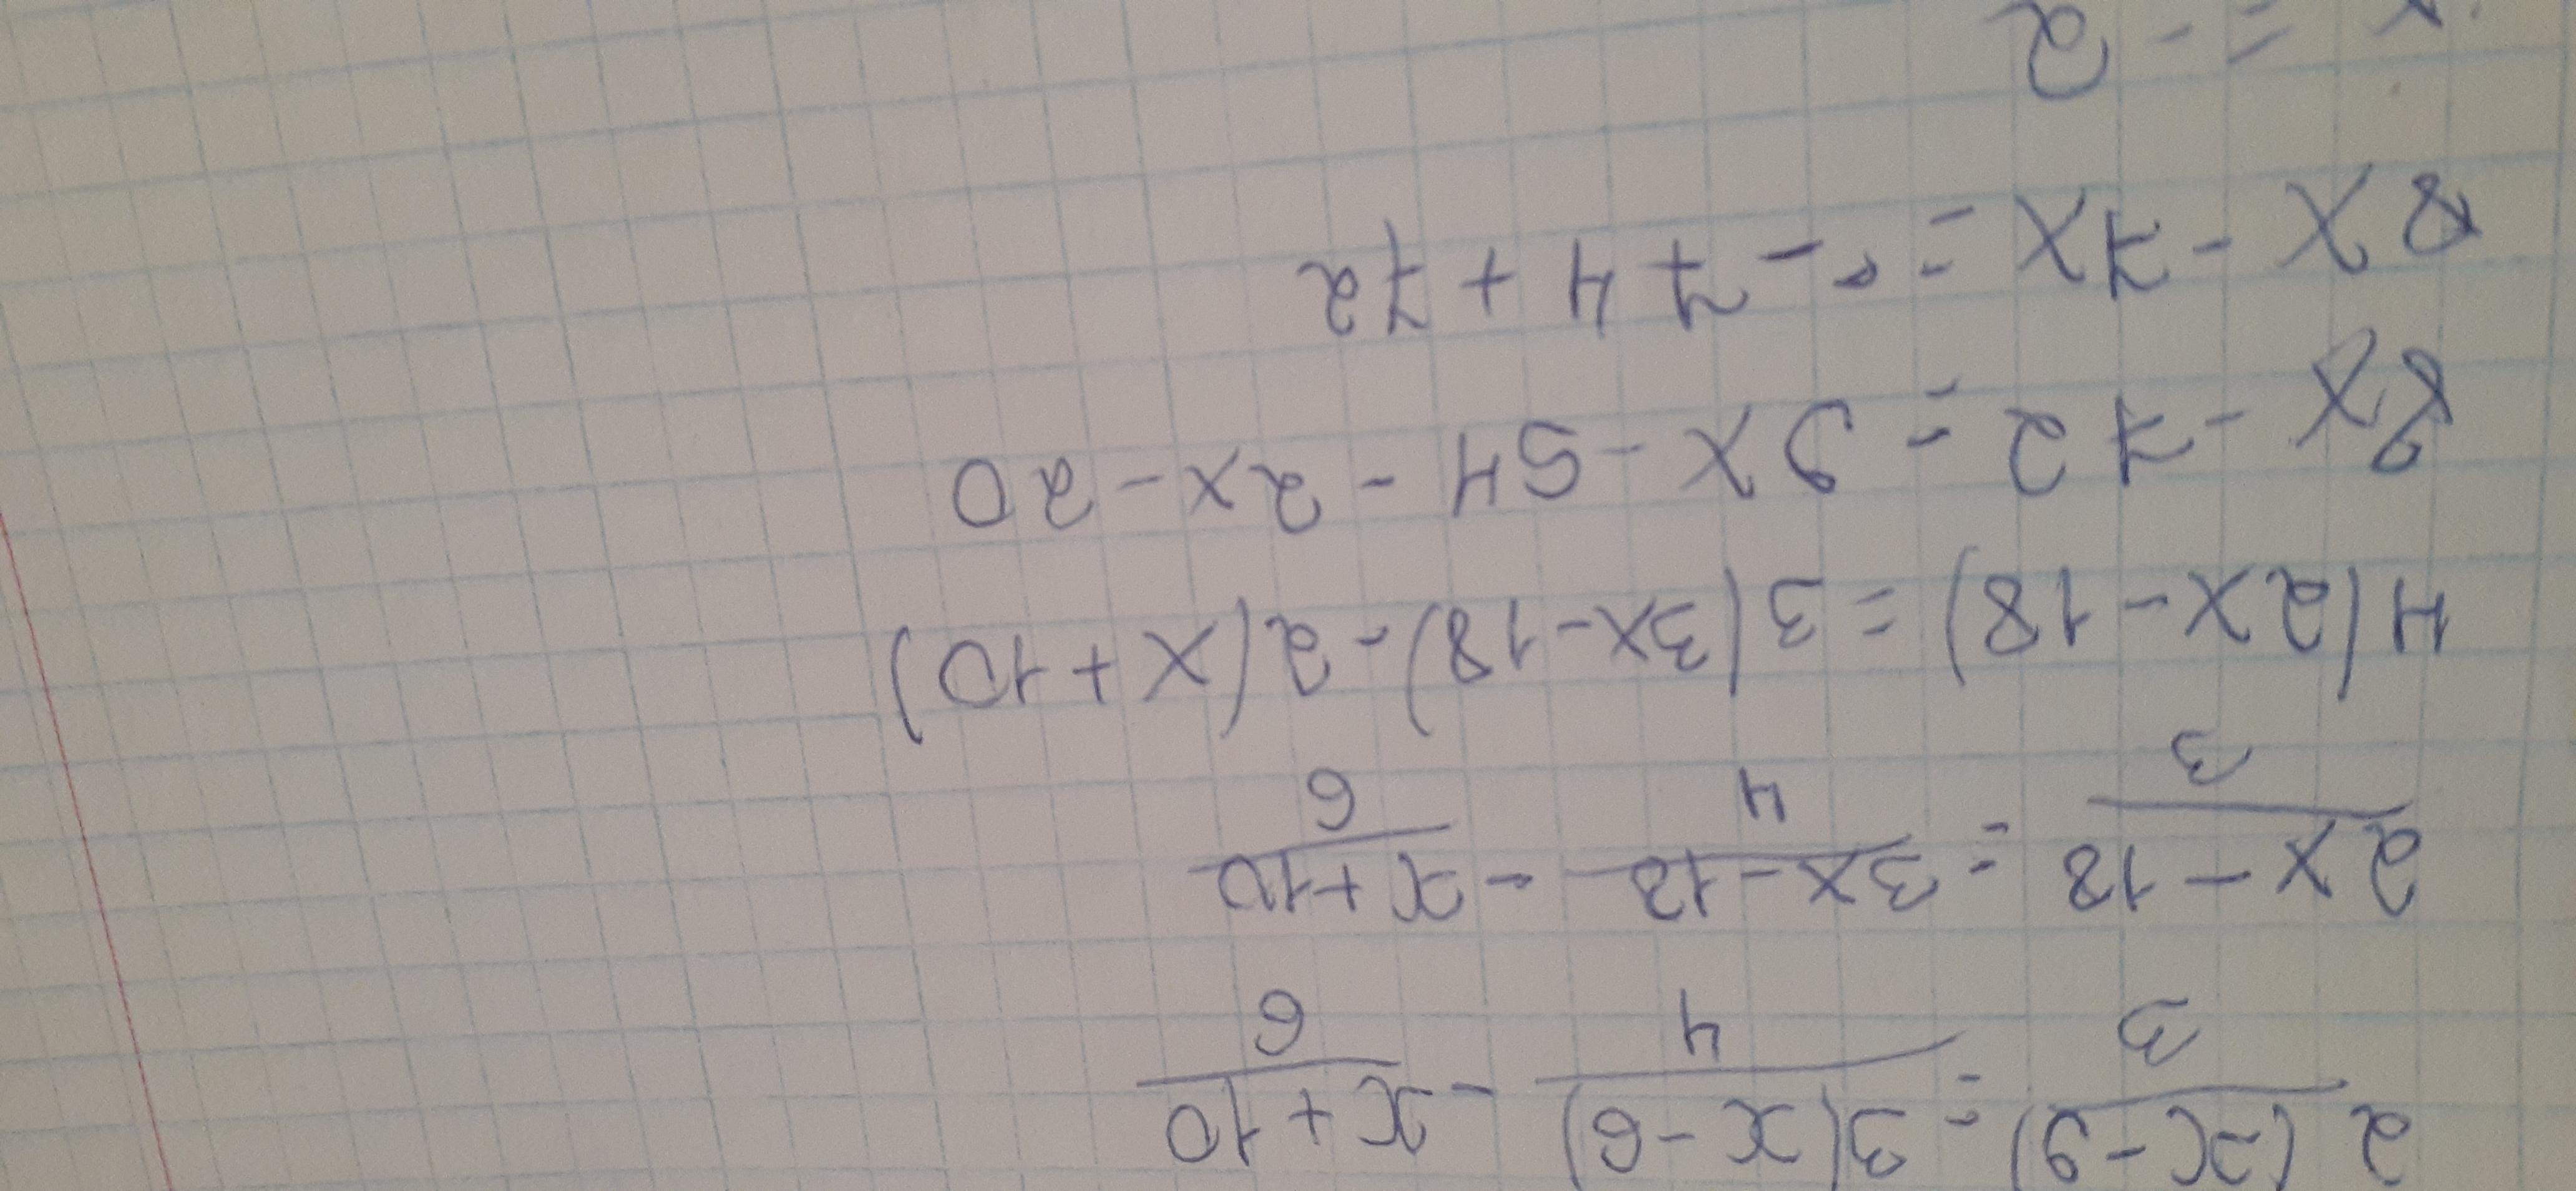 2(x-9)/3 = 3(x-6)/4 - x+10/6
2x-18/3 = 3x-18/4 - x+10/6
4(2x-18) = 3(3x-18)-2(x+10)
8x-72 = 9x-54-2x-20
8x-7x = -74+72
x = -2